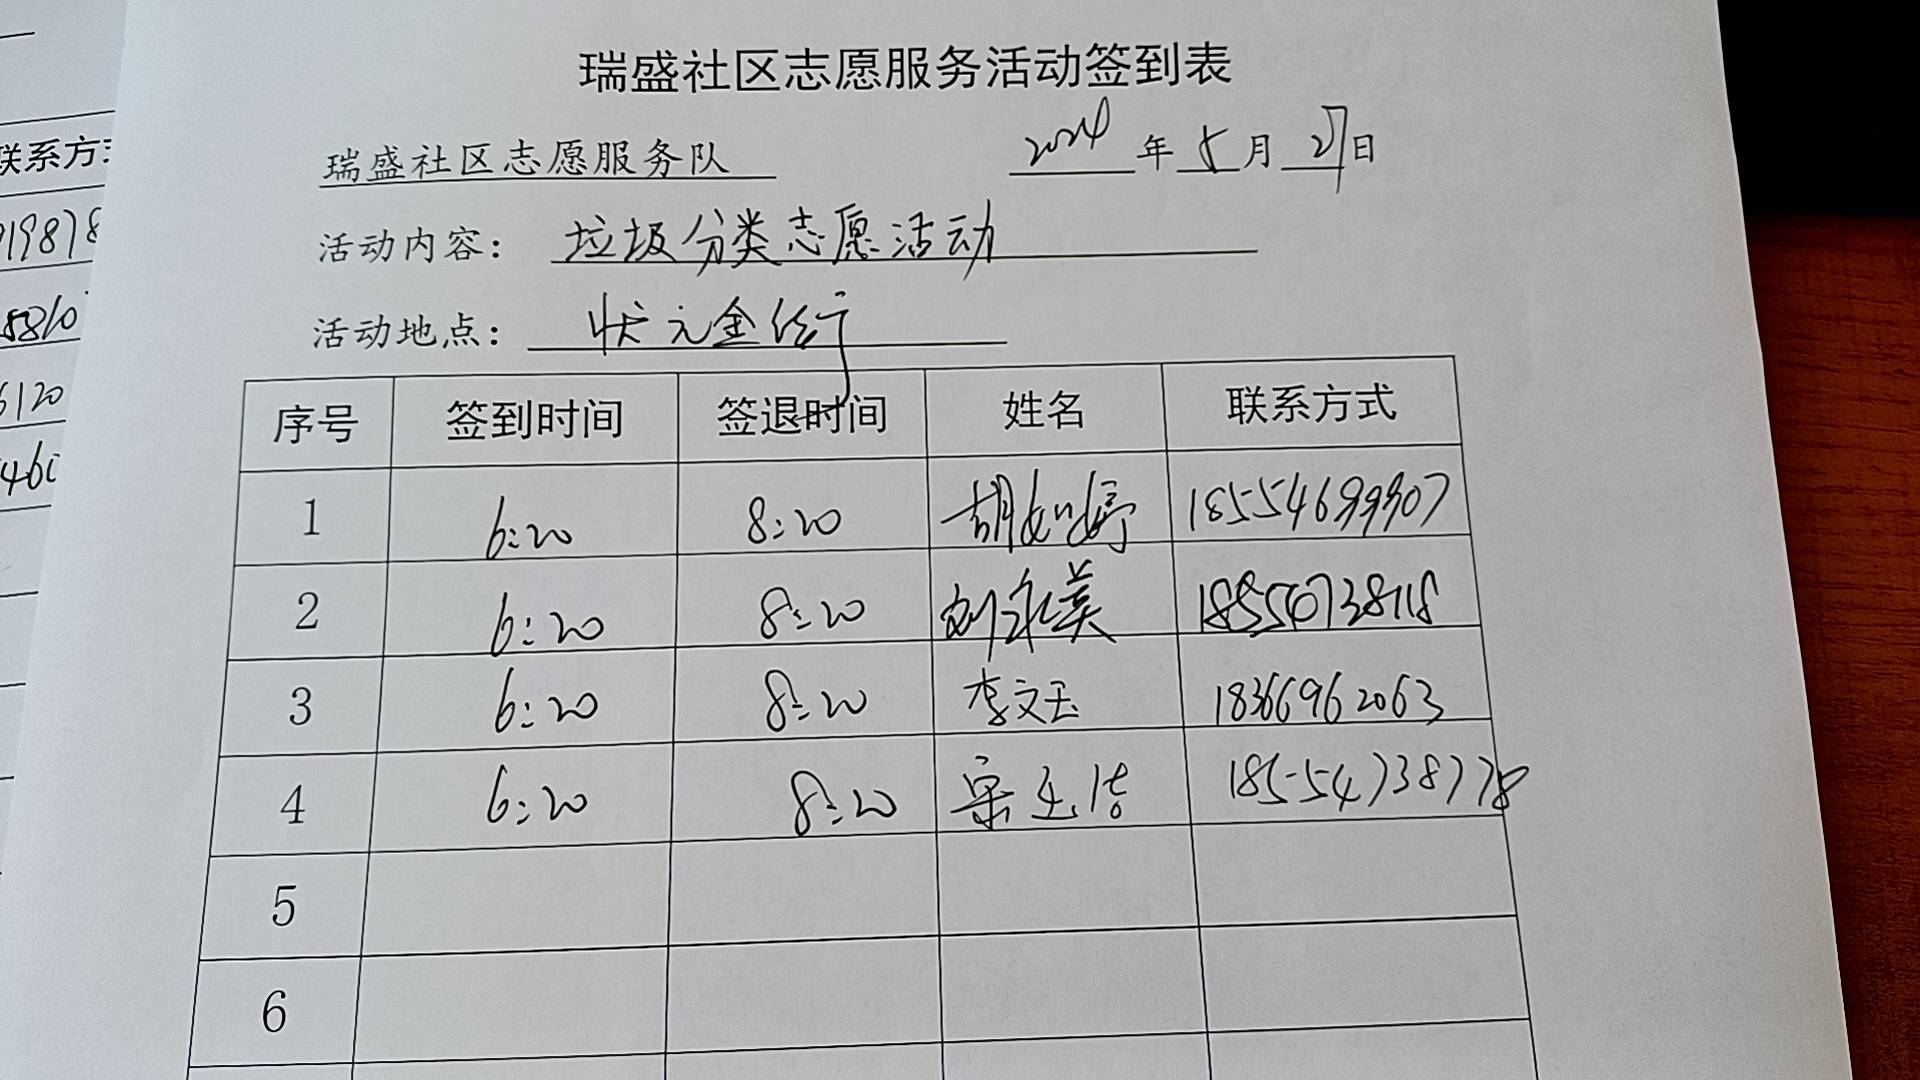 瑞盛社区志愿服务活动签到表
瑞盛社区志愿服务队 2024年5月27日
活动内容: 垃圾分类志愿活动
活动地点: 状元金街
序号 签到时间 签退时间 姓名 联系方式
1 6:20 8:20 胡如婷 18554699907
2 6:20 8:20 刘永美 18554738118
3 6:20 8:20 李文玉 18366962063
4 6:20 8:20 18554738778
5
6
联系方
919878
5120
460